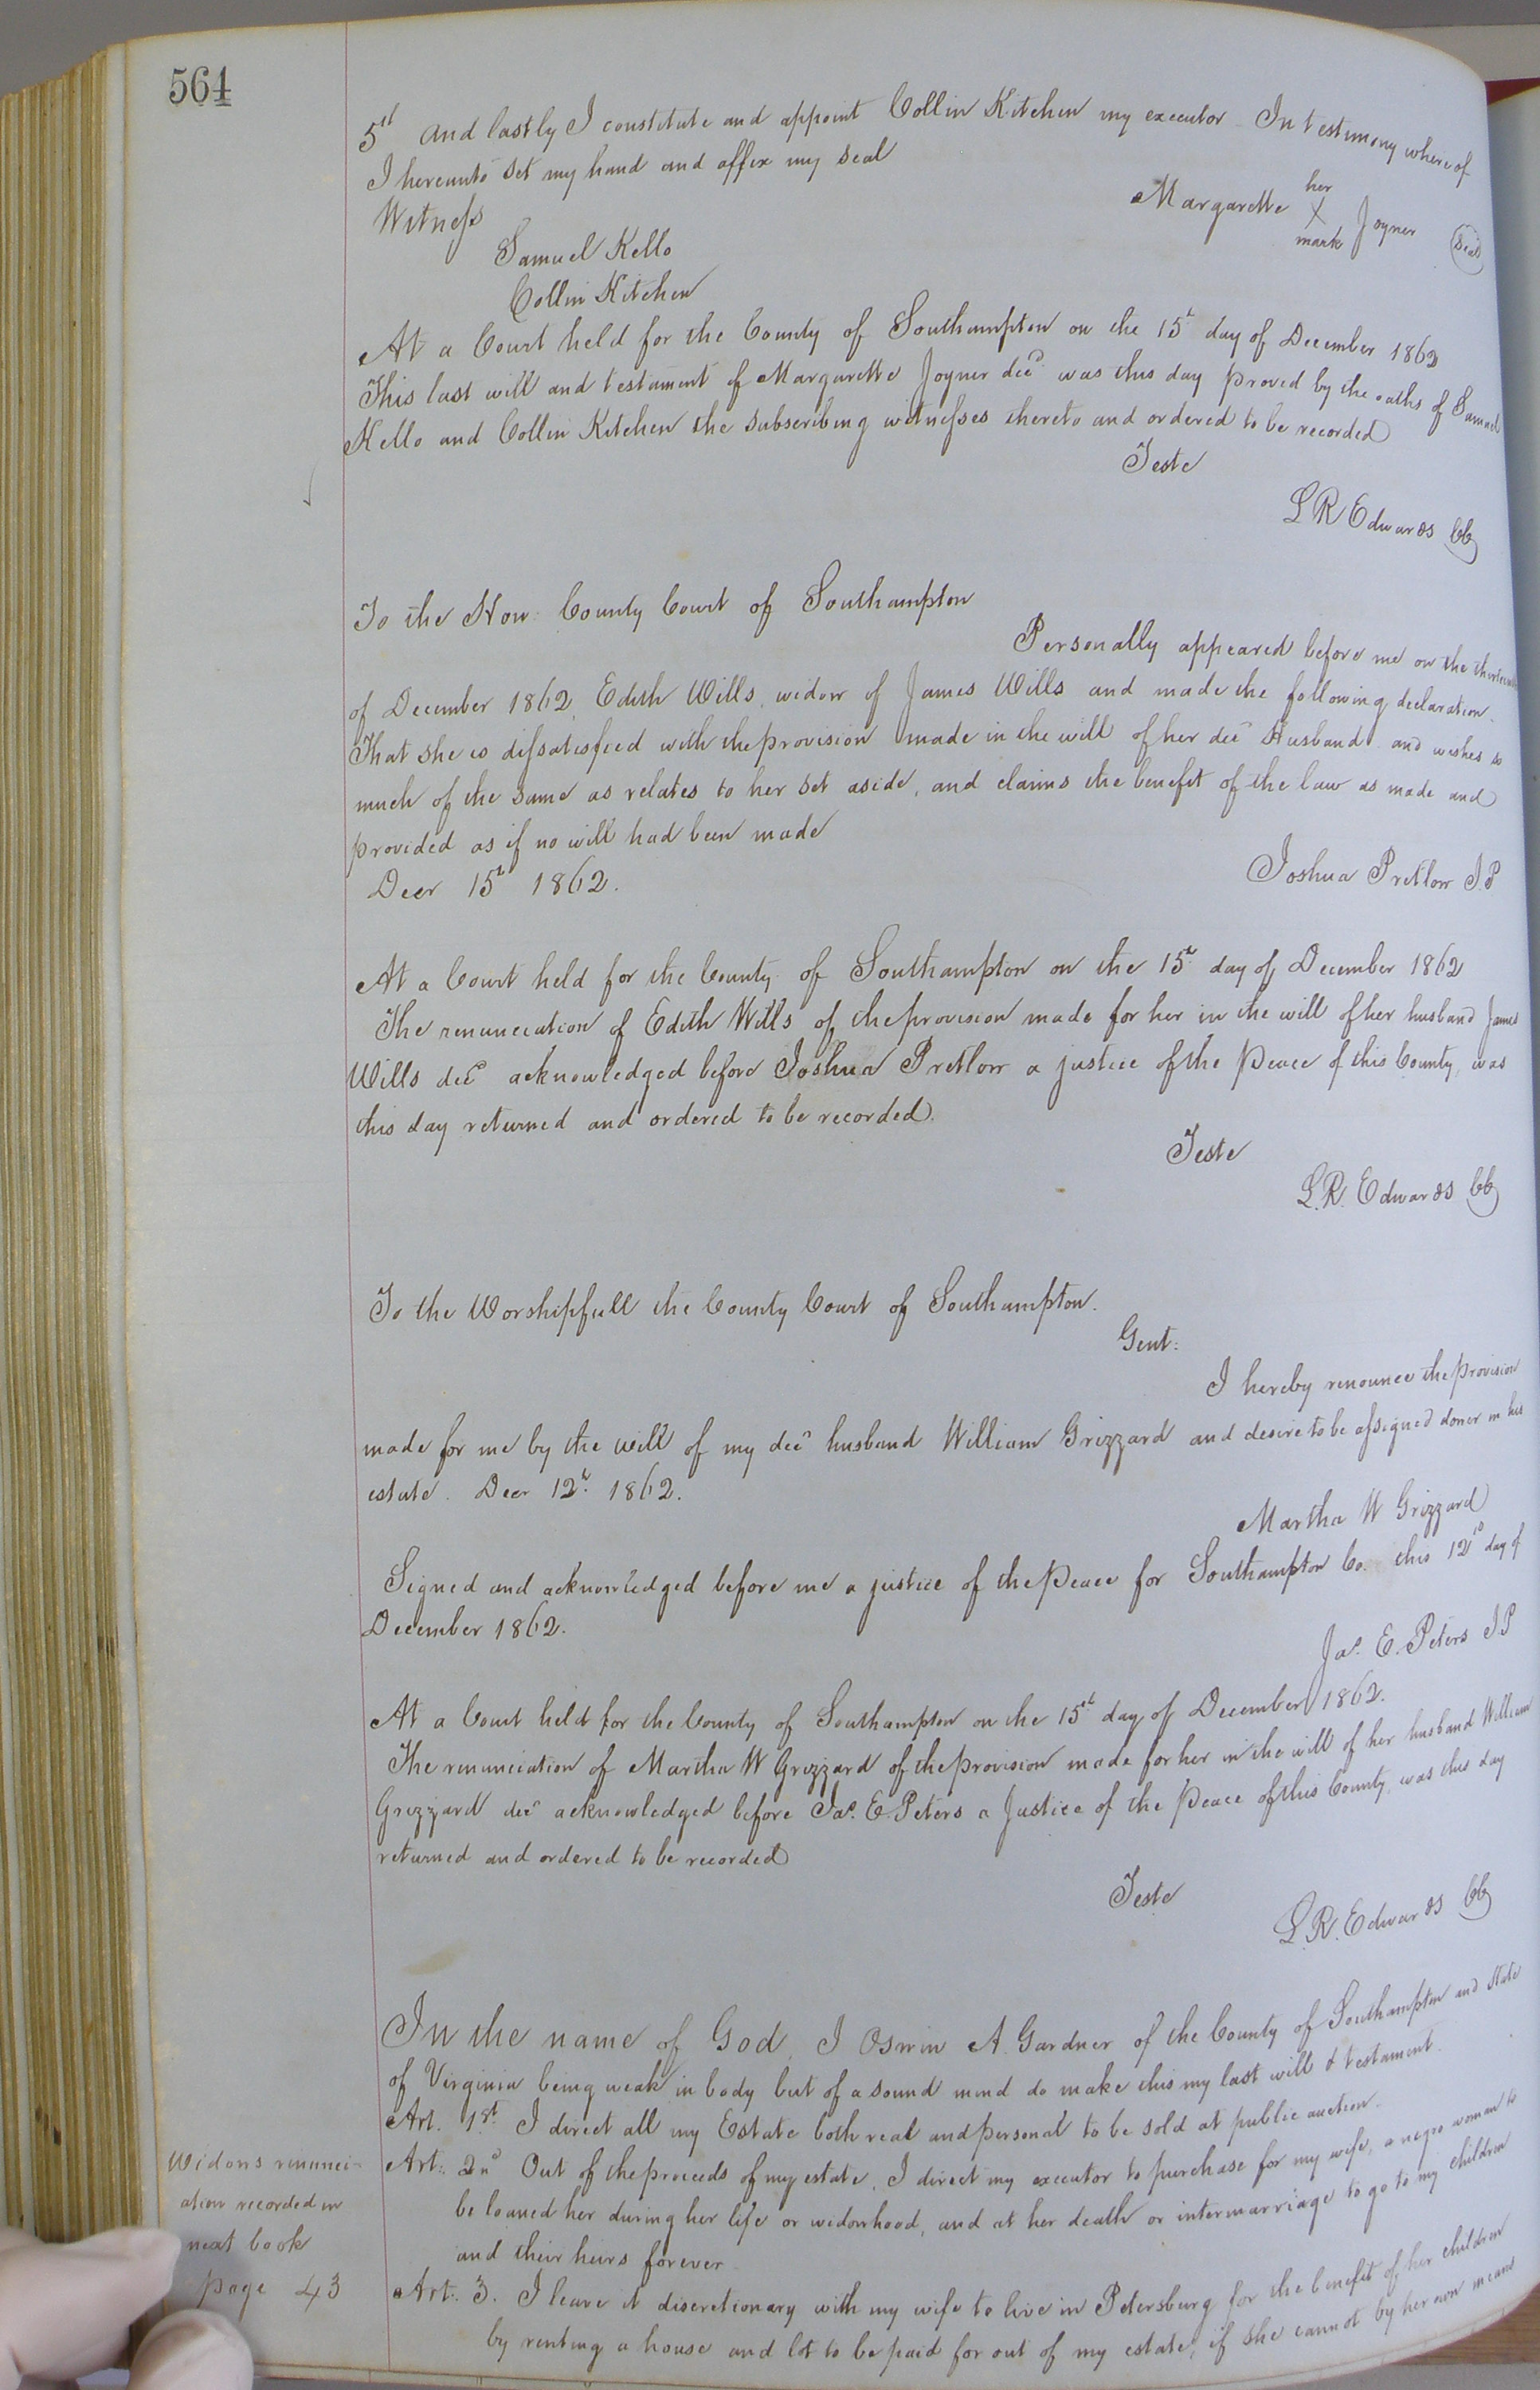 564
5th And lastly I constitute and appoint Collin Kitchen my executor In testimony whereof
I hereunto set my hand and affix my seal
Witness
Margarette her X mark Joyner Seal
Samuel Kello
Collin Kitchen
At a Court held for the County of Southampton on the 15th day of December 1862
This last will and testament of Margarette Joyner decd was this day proved by the oaths of Samuel
Kello and Collin Kitchen the subscribing witnesses thereto and ordered to be recorded
Teste
L R Edwards CC
To the Hon: County Court of Southampton
Personally appeared before me on the thirteenth
of December 1862, Edith Wills, widow of James Wills and made the following declaration.
That she is dissatisfied with the provision made in the will of her decd Husband and wishes so
much of the same as relates to her set aside, and claims the benefit of the law as made and
provided as if no will had been made
Decr 15th 1862.
Joshua Pretlow J.P
At a Court held for the County of Southampton on the 15th day of December 1862
The renunciation of Edith Wills of the provision made for her in the will of her husband James
Wills decd acknowledged before Joshua Pretlow a justice of the Peace of this County, was
this day returned and ordered to be recorded.
Teste
L.R. Edwards CC
To the Worshipfull the County Court of Southampton.
Gent:
I hereby renounce the provision
made for me by the will of my decd husband William Grizzard and desire to be assigned dower in his
estate. Decr 12th 1862.
Martha W Grizzard
Signed and acknowledged before me a justice of the Peace for Southampton Co. this 12th day of
December 1862.
Jas. E. Peters J.P
At a Court held for the County of Southampton on the 15th day of December 1862.
The renunciation of Martha W Grizzard of the provision made for her in the will of her husband William
Grizzard decd acknowledged before Jas. E. Peters a Justice of the Peace of this County, was this day
returned and ordered to be recorded
Teste
L.R. Edwards CC
In the name of God, I Oswin A. Gardner of the County of Southampton and State
of Virginia being weak in body but of a sound mind do make this my last will & testament.
Art. 1st. I direct all my Estate both real and personal to be sold at public auction.
Art: 2nd Out of the proceeds of my estate, I direct my executor to purchase for my wife, a negro woman to
be loaned her during her life or widowhood, and at her death or intermarriage to go to my children
and their heirs forever
Art: 3. I leave it discretionary with my wife to live in Petersburg for the benefit of her children
by renting a house and lot to be paid for out of my estate, if she cannot by her own means
Widows renunci-
ation recorded in
next book
page 43